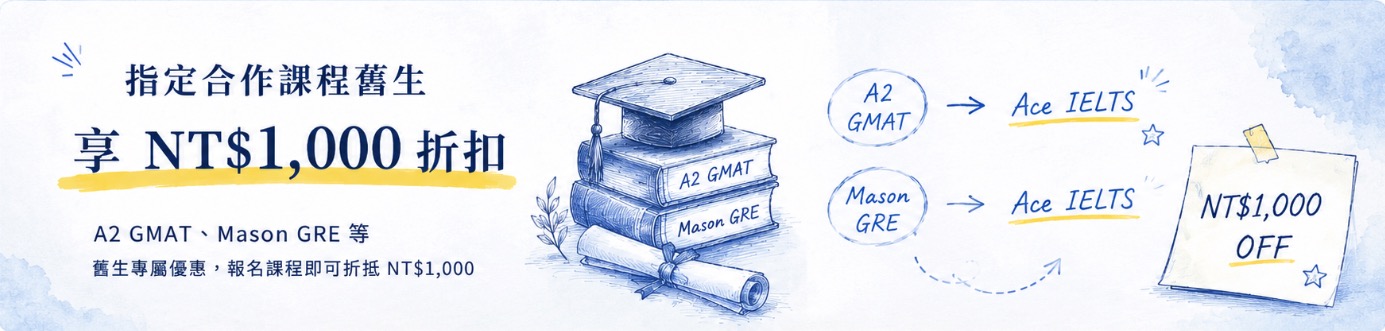 指定合作課程舊生
享 NT$1,000 折扣
A2 GMAT、Mason GRE 等
舊生專屬優惠，報名課程即可折抵 NT$1,000
A2 GMAT
Mason GRE
A2
GMAT
Ace IELTS
Mason
GRE
Ace IELTS
NT$1,000
OFF